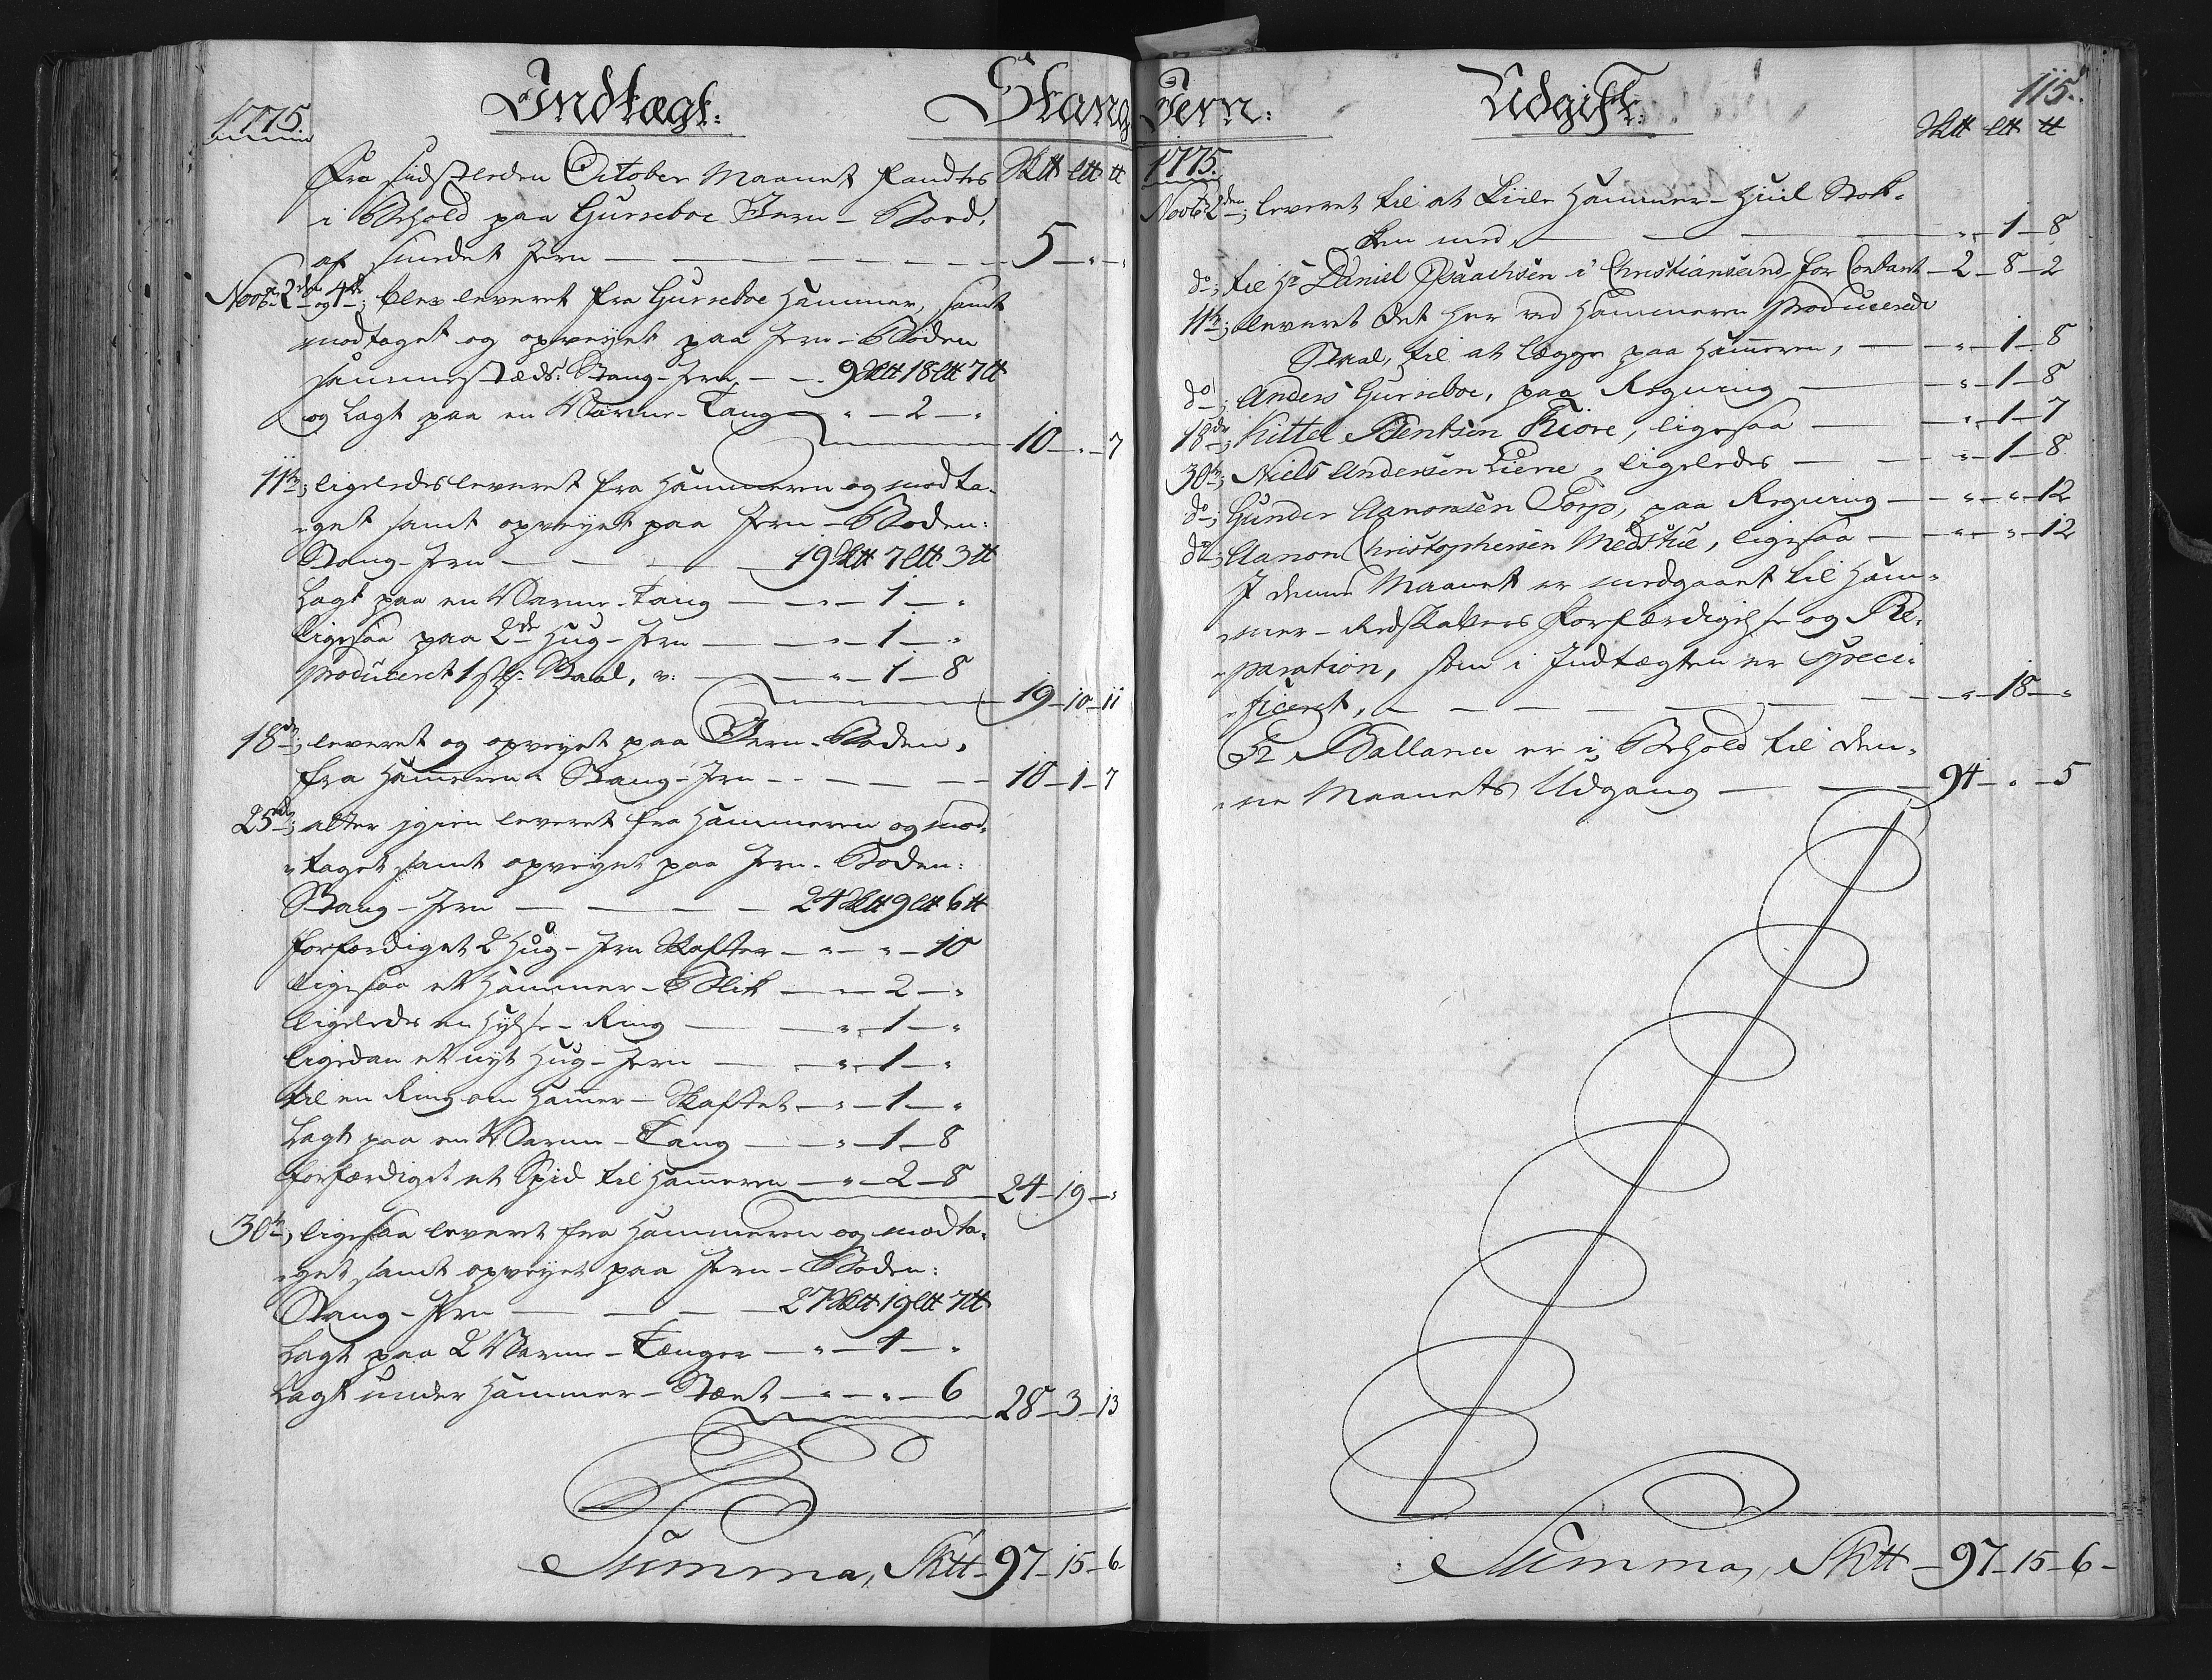 1775. Indtægt: Stang
Sk℔ L℔ ℔
Fra sidstleden October Maanet fandtes
i Behold paa Gurseboe Jern-Boed,
af smedet Jern — 5 - " - "
Novbr 2den og 4de; blev leveret fra Gurseboe Hammer, samt
modtaget og opveyet paa Jern-Boden
sammestæds: Stang-Jern, — 9 Sk℔ 18 L℔ 7 ℔
og lagt paa en Varme-Tang — " - 2 - "
10 - " - 7
11te; ligeledes leveret fra Hammeren og modta-
get samt opveyet paa Jern-Boden:
Stang-Jern — 19 Sk℔ 7 L℔ 3 ℔
Lagt paa en Varme-Tang — " - 1 - "
ligesaa paa 2de Hug-Jern — " - 1 - "
produceret 1 st: Staal, v: — " - 1 - 8
19 - 10 - 11
18de; leveret og opveyet paa Jern-Boden,
fra Hameren Stang-Jern — 10 - 1 - 7
25de; atter igien leveret fra Hammeren og mod-
taget samt opveyet paa Jern-Boden:
Stang-Jern — 24 Sk℔ 9 L℔ 6 ℔
forfærdiget 2 Hug-Jern Skafter — " - " - 10
ligesaa et Hammer-Blik — " - 2 - "
ligeledes en Hylse-Ring — " - 1 - "
ligedan et nyt Hug-Jern — " - 1 - "
til en Ring om Hamer-Skaftet — " - 1 - "
Lagt paa en Varme-Tang — " - 1 - 8
forfærdiget et Spid til Hameren — " - 2 - 8
24 - 19 - "
30te; ligesaa leveret fra Hammeren og modta-
get samt opveyet paa Jern-Boden:
Stang-Jern — 27 Sk℔ 19 L℔ 7 ℔
Lagt paa 2 Varme-Tænger — " - 4 - "
Lagt under Hammer- — " - " - 6
28 - 3 - 13
Summa, Sk℔ - 97 - 15 - 6
Jern: Udgift: 115.
Sk℔ L℔ ℔
1775.
Novbr 2den; leveret til at Kiile Hammer-Hiul Stok-
ken med, — " - 1 - 8
do; til Hr Daniel Isaachsen i Christiansand for Contant - 2 - 8 - 2
11te; leveret det her ved Hammeren producerede
Staal, til at lægge paa Hameren, — " - 1 - 8
do; Anders Gurseboe, paa Regning — " - 1 - 8
18de; Kittel Bentsen Kiøre, ligesaa — " - 1 - 7
30te; Niels Andersen Liene, ligeledes — " - 1 - 8
do; Gunder Aanonsen Torp, paa Regning — " - " - 12
do; Aanon Christophersen Medstue, ligesaa — " - " - 12
I denne Maanet er medgaaet til Ham-
mer-Redskabers Forfærdigelse og Re-
paration, som i Indtægten er speci-
ficeret, — " - 18 - "
Pr Ballance er i Behold til den-
ne Maanets Udgang — 94 - " - 5
Summa, Sk℔ - 97 - 15 - 6 -